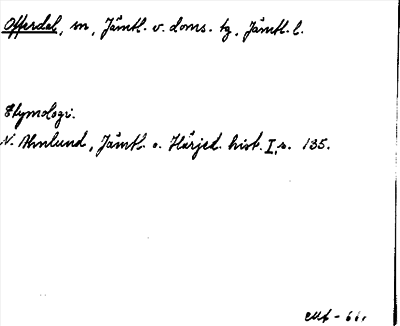 Offerdal, sn, Jämtl. v. doms. tg, Jämtl. l.
Etymologi.
N. Ahnlund, Jämtl. o. Härjed. hist. I, s. 135.